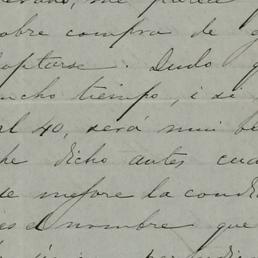 me parece
sobre compra de g
optarse. Dudo q
ucho tiempo, i si
al 40, será mui be
he dicho antes cua
se mejore la condi
es el nombre que